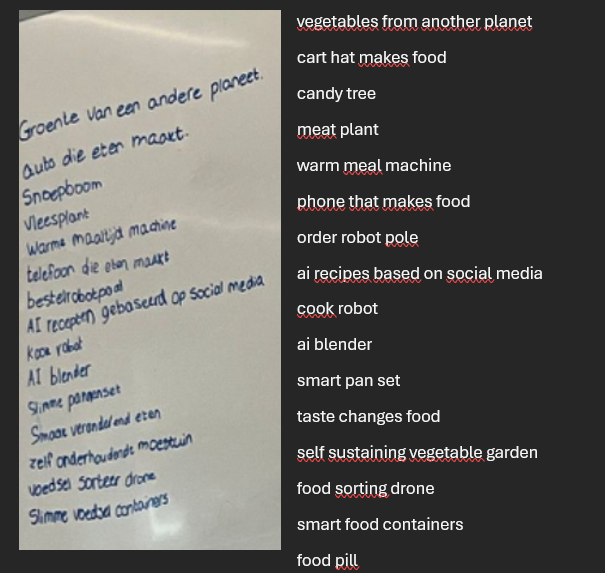 Groente van een andere planeet.
auto die eten maakt.
Snoepboom
Vleesplant
Warme maaltijd machine
telefoon die eten maakt
bestelrobotpaal
AI recepten gebaseerd op social media
Kook robot
AI blender
Slimme pannenset
Smaak veranderend eten
zelf onderhoudende moestuin
voedsel sorteer drone
Slimme voedsel containers
vegetables from another planet
cart hat makes food
candy tree
meat plant
warm meal machine
phone that makes food
order robot pole
ai recipes based on social media
cook robot
ai blender
smart pan set
taste changes food
self sustaining vegetable garden
food sorting drone
smart food containers
food pill